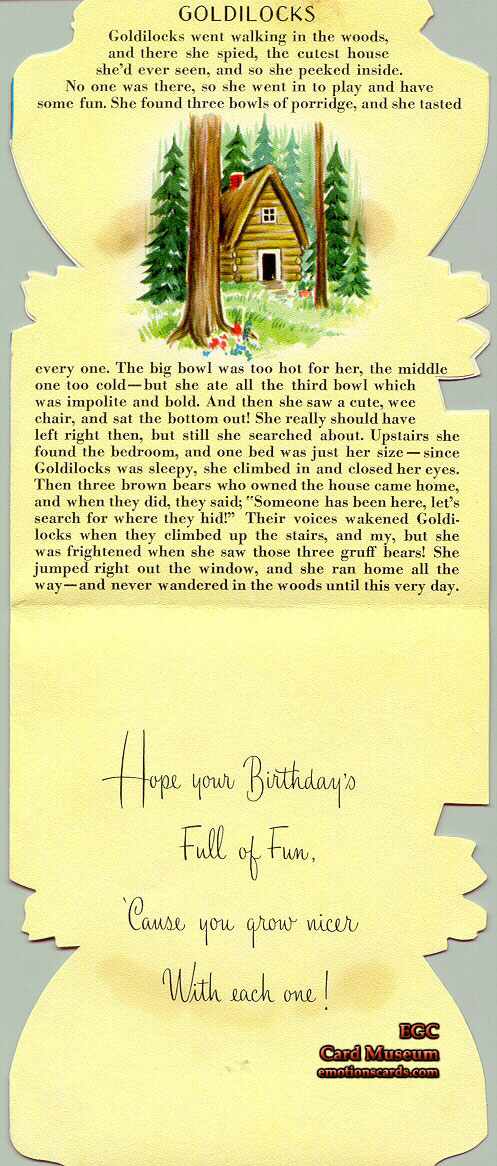 GOLDILOCKS
Goldilocks went walking in the woods,
and there she spied, the cutest house
she'd ever seen, and so she peeked inside.
No one was there, so she went in to play and have
some fun. She found three bowls of porridge, and she tasted
every one. The big bowl was too hot for her, the middle
one too cold—but she ate all the third bowl which
was impolite and bold. And then she saw a cute, wee
chair, and sat the bottom out! She really should have
left right then, but still she searched about. Upstairs she
found the bedroom, and one bed was just her size—since
Goldilocks was sleepy, she climbed in and closed her eyes.
Then three brown bears who owned the house came home,
and when they did, they said; "Someone has been here, let's
search for where they hid!" Their voices wakened Goldi-
locks when they climbed up the stairs, and my, but she
was frightened when she saw those three gruff bears! She
jumped right out the window, and she ran home all the
way—and never wandered in the woods until this very day.
Hope your Birthday's
Full of Fun,
'Cause you grow nicer
With each one!
EGC
Card Museum
emotionscards.com